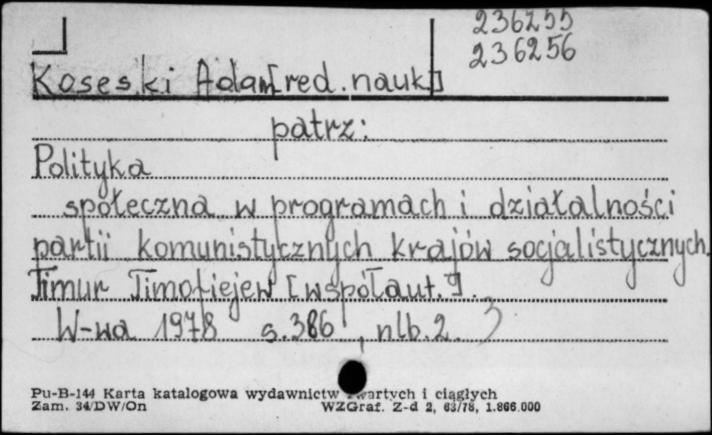 236255
236256
Koseski Adam [red. nauk]
patrz:
Polityka
społeczna w programach i działalności
partii komunistycznych krajów socjalistycznych.
Timur Timofiejew [współaut.].
W-wa 1978 s. 386, nlb. 2.
Pu-B-144 Karta katalogowa wydawnictw zwartych i ciągłych
Zam. 34/DW/On WZGraf. Z-d 2, 63/78, 1.866.000